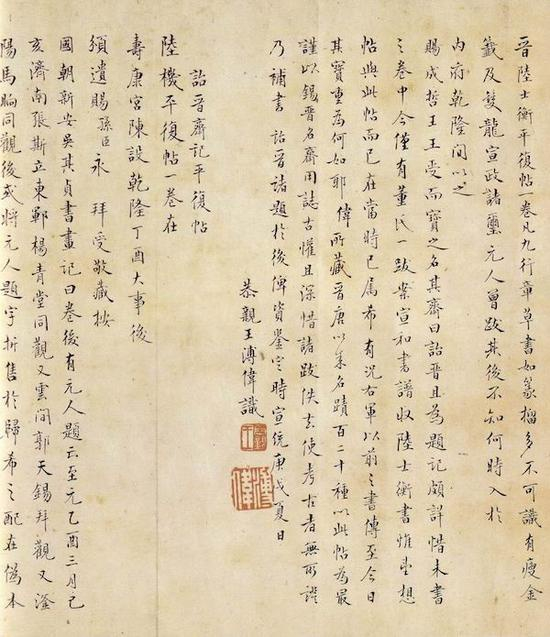 晉陸士衡平復帖一卷凡九行章草書如篆籀多不可識有瘦金
籤及雙龍宣政諸璽元人曾跋其後不知何時入於
內府乾隆間以之
賜成哲王王受而寶之名其齋曰詒晉且為題記頗詳惜未書
之卷中今僅有董氏一跋案宣和書譜收陸士衡書惟望想
帖與此帖而已在當時已屬希有況右軍以前之書傳至今日
其寶重為何如耶偉所藏晉唐以來名蹟百二十種以此帖為最
謹以錫晉名齋用誌古懽且深惜諸跋佚去使考古者無所證
乃補書詒晉諸題於後俾資鑒定時宣統庚戌夏日
恭親王溥偉識
詒晉齋記平復帖
陸機平復帖一卷在
壽康宮陳設乾隆丁酉大事後
頒遺賜孫臣永 拜受敬藏按
國朝新安吳其貞書畫記曰卷後有元人題云至元乙酉三月己
亥濟南張斯立東鄆楊青堂同觀又雲間郭天錫拜觀又滏
陽馬昫同觀後或將元人題字折售於歸希之配在偽本
溥偉